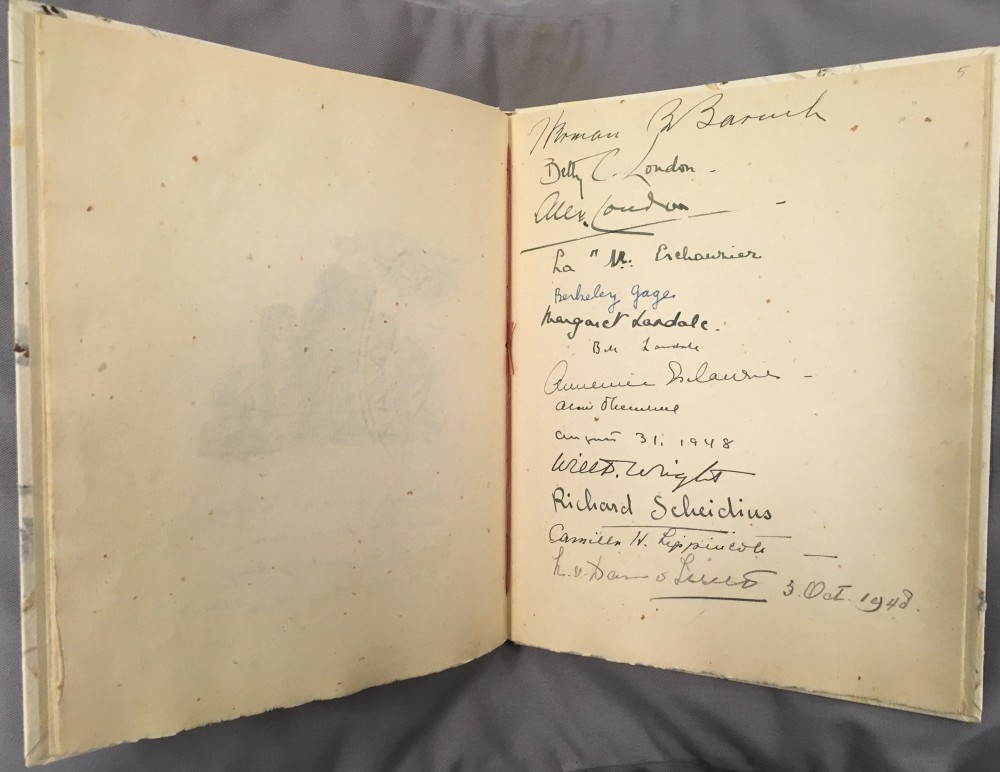 5
Herman B Baruch
Betty C. London -
Alex. London -
La " M. Eschauzier
Berkeley Gage
Margaret Lansdale.
Bill Lansdale
Annemie Eschauzier -
August 31, 1948
Will D. Wright
Richard Scheidius
Camilla H. Lippincott
3. Oct. 1948.